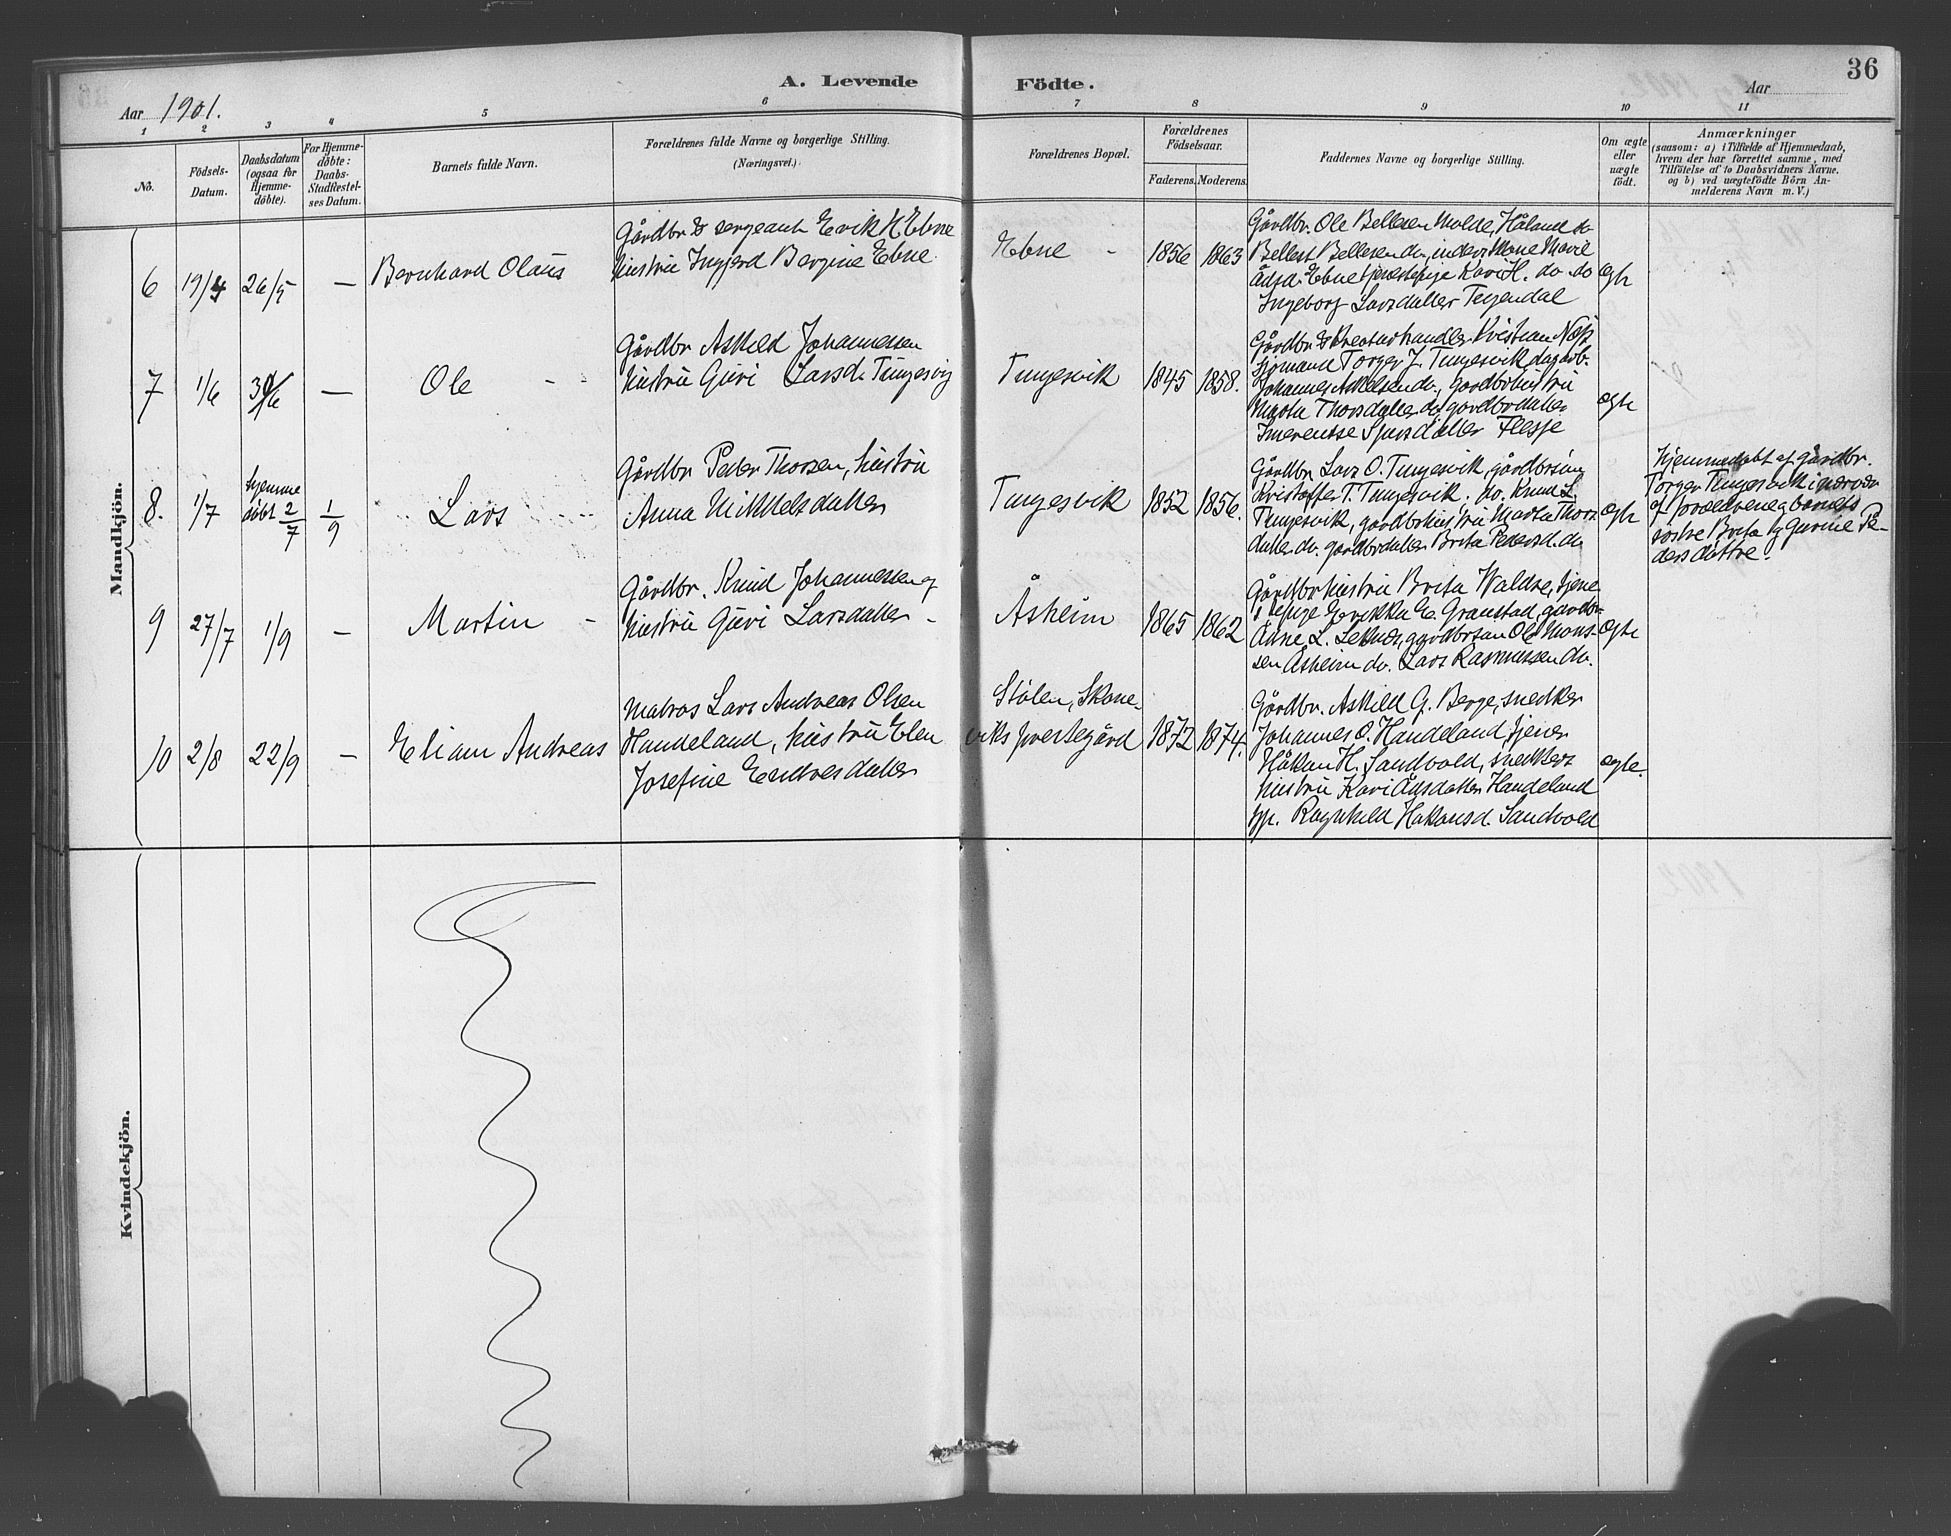 A. Levende Födte. 36
Aar 1901. Aar
1 2 3 4 5 6 7 8 9 10 11
No.
Födsels-
Datum.
Daabsdatum
(ogsaa for
Hjemme-
döbte).
For Hjemme-
döbte:
Daabs-
Stadfæstel-
ses Datum.
Barnets fulde Navn.
Forældrenes fulde Navne og borgerlige Stilling.
(Næringsvei.)
Forældrenes Bopæl.
Forældrenes
Födselsaar.
Faderens. Moderens.
Faddernes Navne og borgerlige Stilling.
Om ægte
eller
uægte
födt.
Anmærkninger
(saasom: a) i Tilfælde af Hjemmedaab,
hvem der har forrettet samme, med
Tilföielse af to Daabsvidners Navne,
og b) ved uægtefödte Börn An-
melderens Navn m. V.)
Mandkjön.
6 19/4 26/5 — Bernhard Olaus
Gårdbr & sergeant Erik H Ebne
hustru Ingjerd Bergine Ebne
Ebne - 1856 1863
Gårdbr. Ole Bellesen Molde, Håland do
Bellest Bellesen do, inderst Marie
Ebne tjenestepige Kari H. do. do
Ingeborg Larsdatter Teigendal
egte
7 1/6 30/6 — Ole - -
Gårdbr Askild Johannessen
hustru Guri Larsd. Tungesvig
Tungesvik 1845 1858.
Gårdbr & Kreaturhandler Kristian Næs,
Torger J. Tungesvik dagarb.
Johannes Askildsen do., gardbrhustru
Marta Thorsdatter do, gardbrdatter
Imerentse Sjursdatter Flesje
egte
8. 1/7 hjemme
døbt 2/7 1/9 Lars
Gårdbr Peder Thorsen, hustru
Anna Mikkelsdatter
Tungesvik 1852 1856.
Gårdbr. Lars O. Tungesvik, gårdbrsøn
Kristoffer T. Tungesvik. do. Knud L.
Tungesvik, gardbrhustru Marta Thors-
datter do. gardbrdatter Brita Pedersd. do
egte
Hjemmedøbt af gårdbr.
Torger Tungesvik i nærvær
af forældrene og barnets
søstre Brita og Gurine Pe-
dersdøttre.
9 27/7 1/9 — Martin -
Gårdbr. Knud Johannessen og
hustru Guri Larsdatter -
Åsheim 1865 1862
Gårdbrhustru Brita Waldse, tjene-
stepige Erikka E. Granstad, gardbr.
Anne L. Leknes, gardbrsøn Ole Mons-
sen Åsheim do. Lars Rasmussen do.
egte
10 2/8 22/9 — Eliam Andreas
Matros Lars Andreas Olsen
Handeland, hustru Elen
Josefine Endresdatter
Stølen, Skone-
viks prestegård 1872 1874.
Gårdbr. Askild G. Berge, snedker
Johannes O. Handeland, tjener
Håkon H. Sandvold, snedkers
hustru Kari Ådsdatter Handeland
pp. Ragnhild Hakonsd. Sandvold
egte.
Kvindekjön.